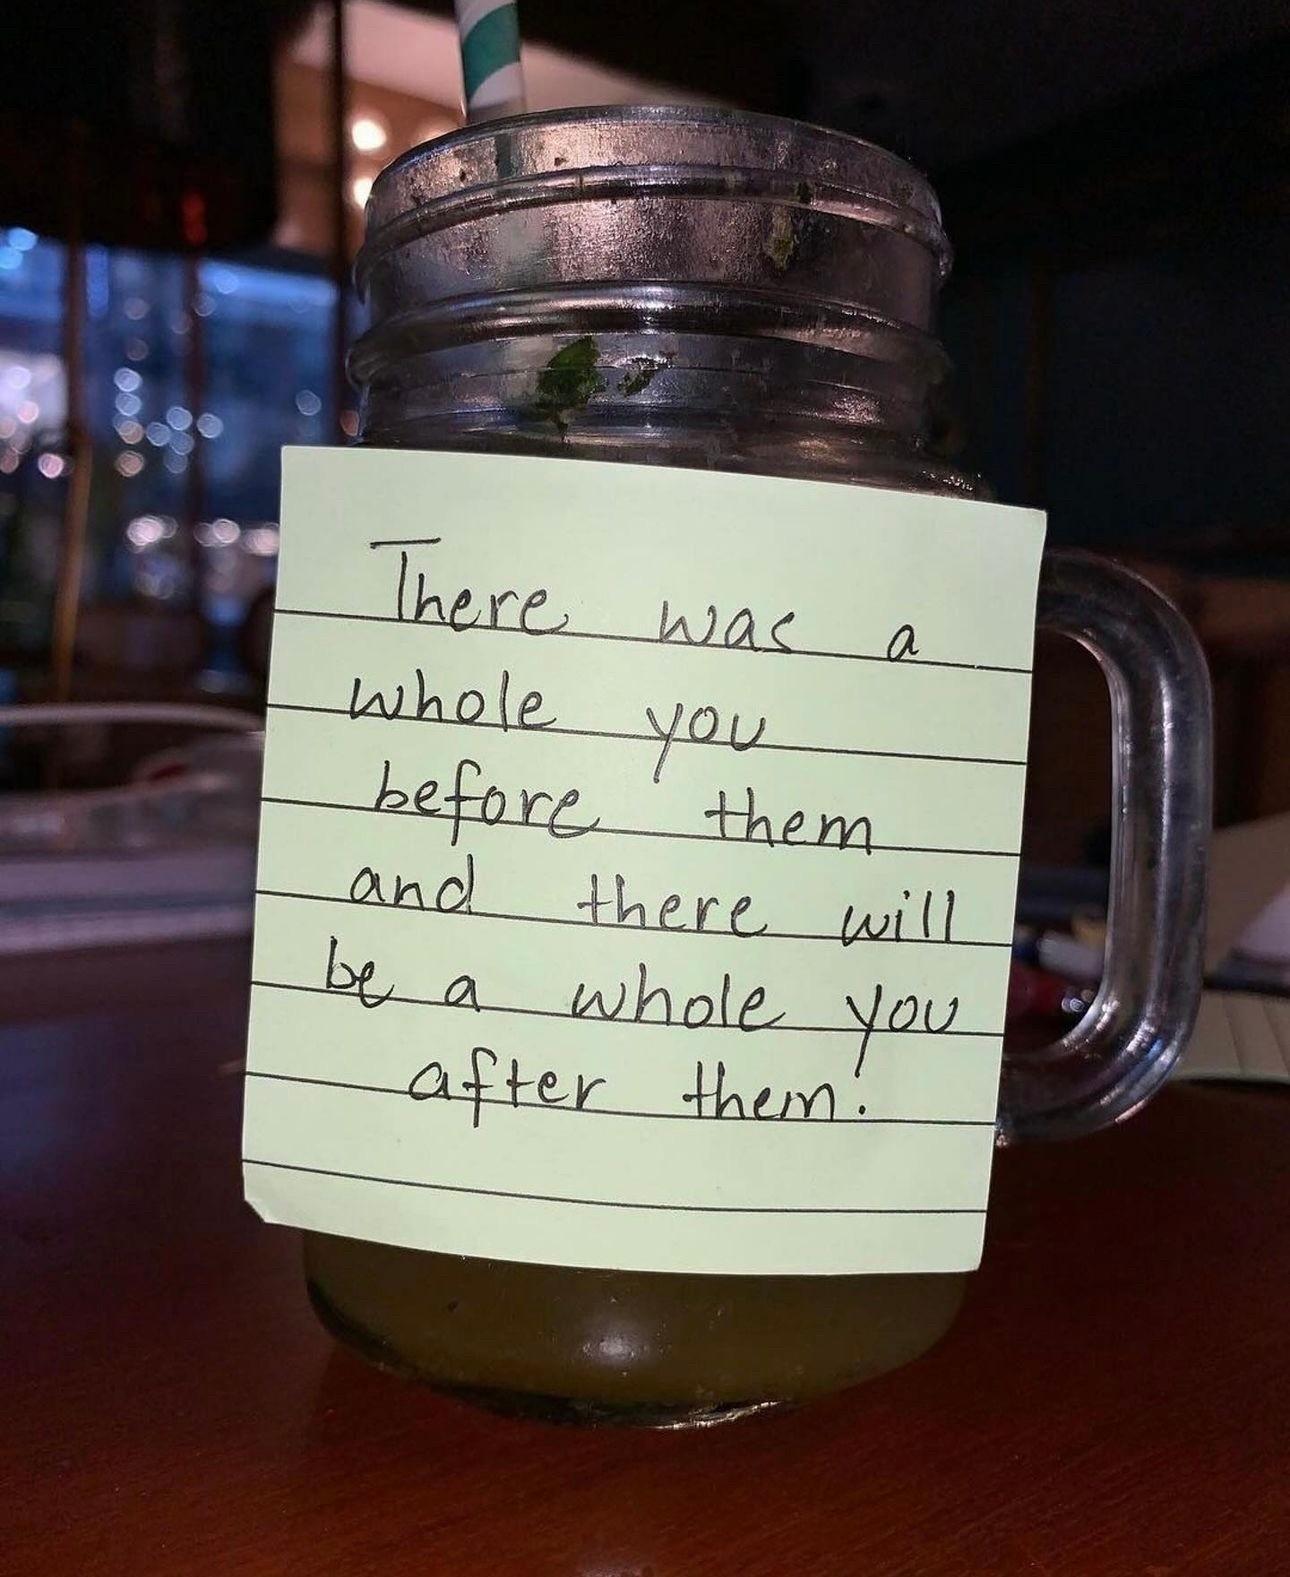 There was a
whole you
before them
and there will
be a whole you
after them.